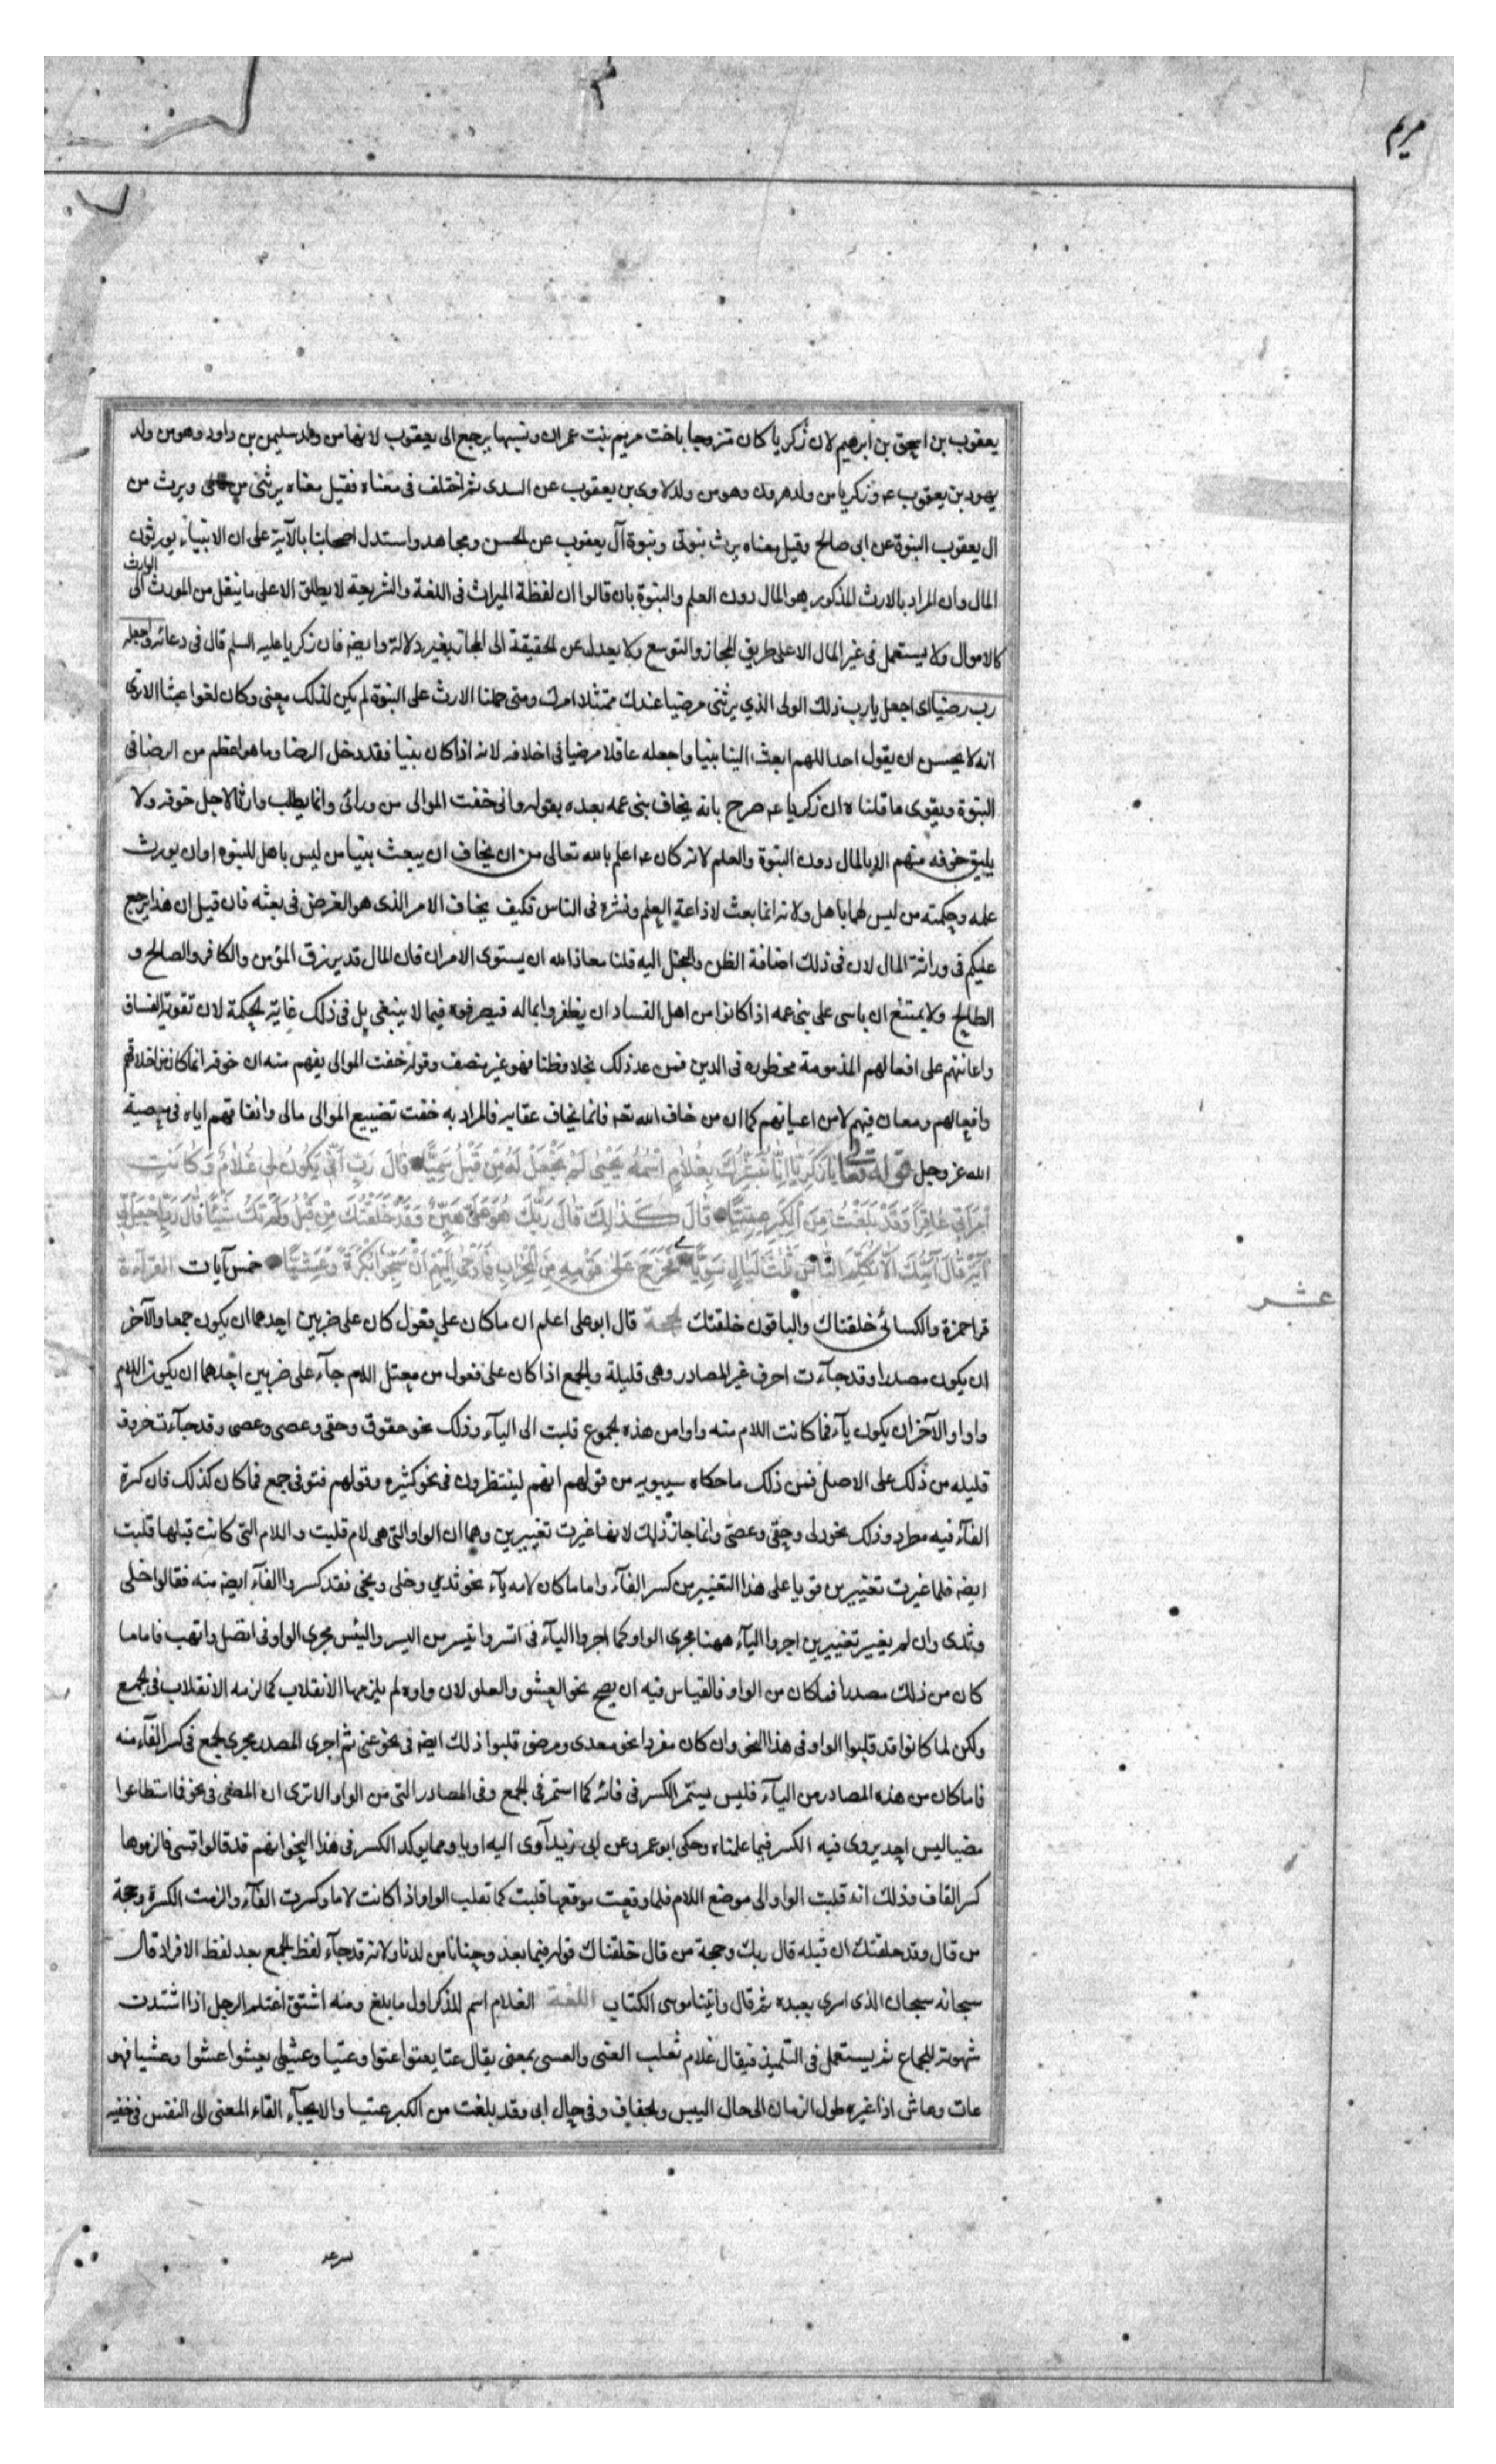 مريم
يعقوب بن اسحق بن ابرهيم لان زكريا كان متزوجا باخت مريم بنت عمران ونسبها يرجع الى يعقوب لانها من ولد سليمن بن داود وهو من ولد
يهود بن يعقوب عم وزكريا من ولد هرون وهو من ولد لاوى بن يعقوب عن السدى ثم اختلف فى معناه فقيل معناه يرثنى من مالى ويرث من
ال يعقوب النبوة عن ابى صالح وقيل معناه يرث نبوتى ونبوة آل يعقوب عن الحسن ومجاهد واستدل اصحابنا بالآية على ان الانبياء يورثون
المال وان المراد بالارث المذكور هو المال دون العلم والنبوة بان قالوا ان لفظة الميراث فى اللغة والشريعة لا يطلق الا على ما ينقل من المورث الى الوارث
كالاموال ولا يستعمل فى غير المال الا على طريق المجاز والتوسع ولا يعدل عن الحقيقة الى المجاز بغير دلالة وايضه فان زكريا عليه السلم قال فى دعائه واجعله
رب رضيا اى اجعل يا رب ذلك الولى الذي يرثنى مرضيا عندك ممتثلا امرك ومتى حملنا الارث على النبوة لم يكن لذلك معنى وكان لغوا عبثا الا ترى
انه لا يحسن ان يقول احد اللهم ابعث الينا نبيا واجعله عاقلا مرضيا فى اخلاقه لانه اذا كان نبيا فقد دخل الرضا وما هو اعظم من الرضا فى
النبوة ويقوى ما قلناه ان زكريا عم صرح بانه يخاف بنى عمه بعده بقوله وانى خفت الموالى من ورائى وانما يطلب وارثا لاجل خوفه ولا
يليق خوفه منهم الا بالمال دون النبوة والعلم لانه كان عم اعلم بالله تعالى من ان يخاف ان يبعث نبيا من ليس باهل للنبوه او ان يورث
علمه وحكمته من ليس لهما باهل ولانه انما بعث لاذاعة العلم ونشره فى الناس فكيف يخاف الامر الذى هو الغرض فى بعثه فان قيل ان هذا يرجع
عليكم فى وراثة المال لان فى ذلك اضافة الظن والبخل اليه قلنا معاذ الله ان يستوى الامران فان المال قد يرزق المؤمن والكافر والصالح و
الطالح ولا يمتنع ان ياسى على بنى عمه اذا كانوا من اهل الفساد ان يظفروا بماله فيصرفوه فيما لا ينبغى بل فى ذلك غاية الحكمة لان تقوية الفساق
واعانتهم على افعالهم المذمومة محظوره فى الدين فمن عد ذلك بخلا وظنا فهو غير منصف وقوله خفت الموالى يفهم منه ان خوفه انما كان من اخلاقهم
وافعالهم ومعان فيهم لا من اعيانهم كما ان من خاف الله تعه فانما يخاف عقابه فالمراد به خفت تضييع الموالى مالى وانفاقهم اياه فى معصية
الله عز وجل قوله تعالى يا زكريا انا نبشرك بغلام اسمه يحيى لم نجعل له من قبل سميا قال رب انى يكون لى غلام وكانت
امراتى عاقرا وقد بلغت من الكبر عتيا قال كذلك قال ربك هو على هين وقد خلقتك من قبل ولم تك شيئا قال رب اجعل لى
آية قال آيتك الا تكلم الناس ثلث ليال سويا فخرج على قومه من المحراب فاوحى اليهم ان سبحوا بكرة وعشيا خمس آيات القراءة
عشر
قرا حمزة والكسائى خلقناك والباقون خلقتك الحجة قال ابو على اعلم ان ما كان على فعول كان على ضربين احدهما ان يكون جمعا والآخر
ان يكون مصدرا وقد جآءت احرف غير المصادر وهى قليلة والجمع اذا كان على فعول من معتل اللام جآء على ضربين احدهما ان يكون اللام
واوا والآخر ان يكون يآء فما كانت اللام منه واوا من هذه الجموع قلبت الى اليآء وذلك نحو حقو وحقى وعصى وعصى وقد جآءت حروف
قليله من ذلك على الاصل فمن ذلك ما حكاه سيبويه من قولهم انهم لينتظرون فى نحو كثيره وقولهم فتو فى جمع فما كان كذلك فان كسرة
الفآء فيه مطرد وذلك نحو دلى وحقى وعصى وانما جاز ذلك لانها غيرت تغييرين وهما ان الواو التى هى لام قلبت واللام التى كانت قبلها قلبت
ايضه فلما غيرت تغييرين قويا على هذا التغيير من كسر الفآء واما ما كان لامه يآء نحو ثدي وحلى ونحى فقد كسروا الفآء ايضه منه فقالوا حلى
وثدى وان لم يغير تغييرين اجروا اليآء ههنا مجرى الواو كما اجروا اليآء فى اتسروا تيسر من اليسر واليئس مجرى الواو فى اتصل واتهب فاما ما
كان من ذلك مصدرا فما كان من الواو فالقياس فيه ان يصح نحو العتو والعلو لان واوه لم يلزمها الانقلاب كما لزمه الانقلاب فى الجمع
ولكن لما كانوا قد قلبوا الواو فى هذا النحو وان كان مفردا نحو معدى ومرضى قلبوا ذلك ايضه فى نحو عتى ثم اجرى المصدر مجرى الجمع فى كسر الفآء منه
فاما كان من هذه المصادر من اليآء فليس يستمر الكسر فى فائه كما استمر فى الجمع وفى المصادر التى من الواو الا ترى ان المضى فى نحو فما استطاعوا
مضيا ليس احد يروى فيه الكسر فيما علمناه وحكى ابو عمرو عن ابى زيد آوى اليه اويا ومما يوكد الكسر فى هذا النحو انهم قد قالوا قسى فالزموها
كسر القاف وذلك انه قلبت الواو الى موضع اللام فلما وقعت موقعها قلبت كما تقلب الواو اذا كانت لاما وكسرت الفآء والزمت الكسرة وحجة
من قال وقد خلقتك ان قبله قال ربك وحجة من قال خلقناك قوله فيما بعد وحنانا من لدنا ولانه قد جآء لفظ الجمع بعد لفظ الافراد قال
سبحانه سبحان الذى اسرى بعبده ثم قال وآتينا موسى الكتاب اللغة الغلام اسم للذكر اول ما يبلغ ومنه اشتق اغتلم الرجل اذا اشتدت
شهوته للجماع ثم يستعمل فى التلميذ فيقال غلام ثعلب العتى والعسى بمعنى يقال عتا يعتوا عتوا وعتيا وعشى يعشوا عشوا وعشيا فهو
عات وعاش اذا غيره طول الزمان الى حال اليبس والجفاف وفى حرف ابى وقد بلغت من الكبر عتيا والايحآء القاء المعنى الى النفس فى خفيه